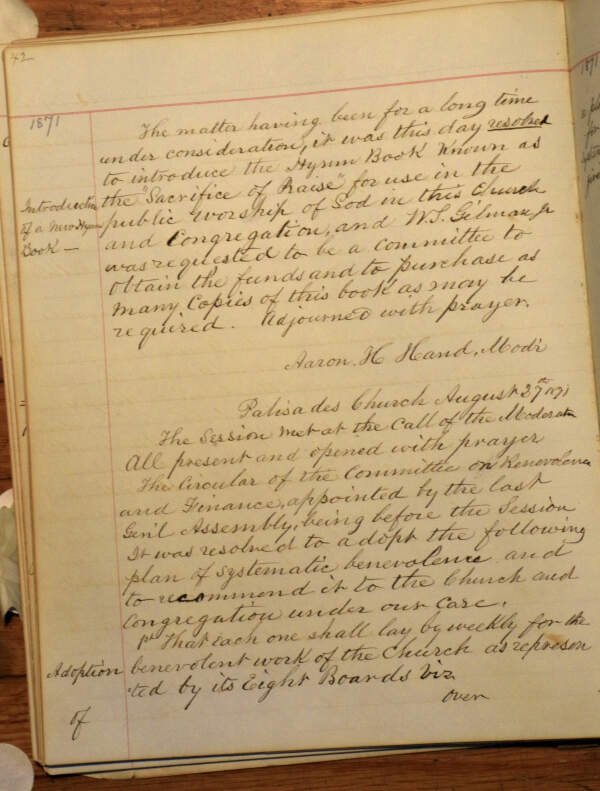 42
1871
The matter having been for a long time
under consideration, it was this day resolved
to introduce the Hymn Book Known as
the "Sacrifice of Praise" for use in the
Introduction
public worship of God in this Church
of a New Hymn
and Congregation, and W.S. Gilman, Jr
Book —
was requested to be a committee to
obtain the funds and to purchase as
many Copies of this book as may be
required. Adjourned with prayer.
Aaron. H Hand, Modr
Palisades Church August 27th 1871
The Session met at the Call of the Moderator
All present and opened with prayer
The Circular of the Committee on Benevolence
and Finance, appointed by the last
Gen'l Assembly, being before the Session
It was resolved to adopt the following
plan of systematic benevolence and
to recommend it to the Church and
Congregation under our Care.
1st That each one shall lay by weekly for the
Adoption
benevolent work of the Church as represen
ted by its Eight Boards Viz.
of
over
1871